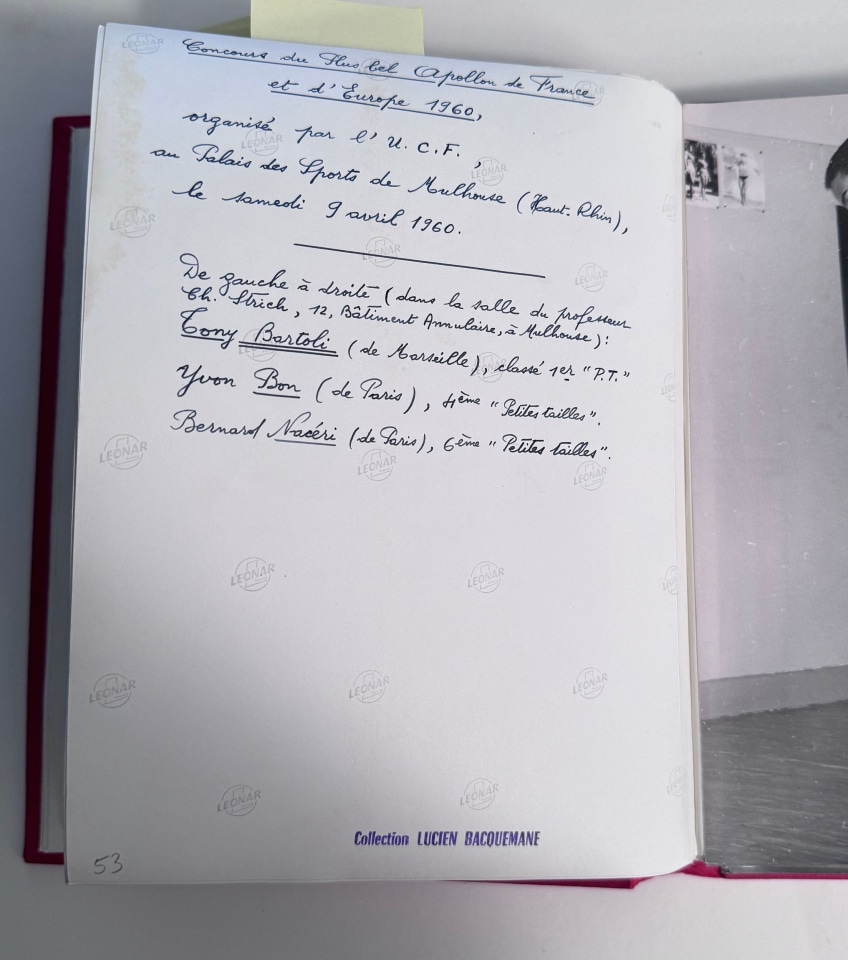 Concours du Plus bel Apollon de France
et d'Europe 1960,
organisé par l'U.C.F.,
au Palais des Sports de Mulhouse (Haut-Rhin),
le samedi 9 avril 1960.
De gauche à droite (dans la salle du professeur
Ch. Strich, 12, Bâtiment Annulaire, à Mulhouse):
Tony Bartoli (de Marseille), classé 1er "P.T."
Yvon Bon (de Paris), 4ème "Petites tailles".
Bernard Nacéri (de Paris), 6ème "Petites tailles".
LEONAR
Collection LUCIEN BACQUEMANE
53